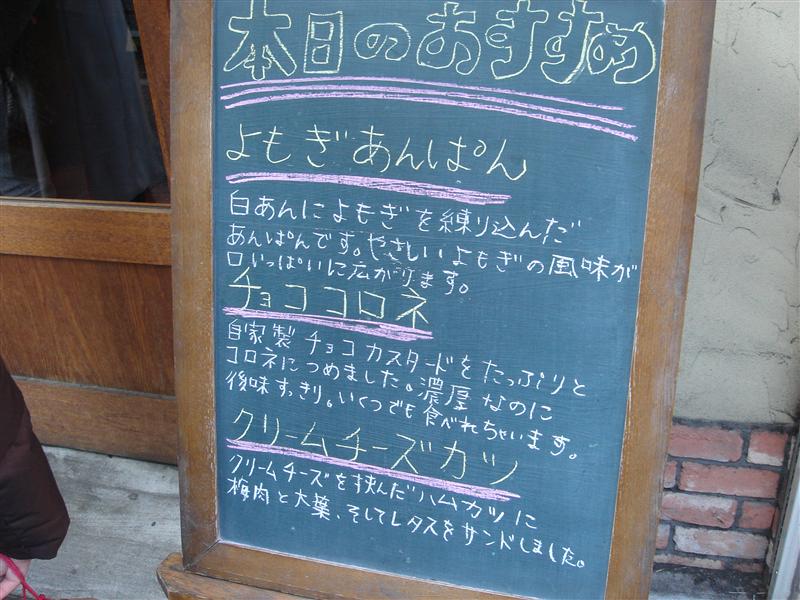 本日のおすすめ
よもぎあんぱん
白あんによもぎを練り込んだ
あんぱんです。やさしいよもぎの風味が
口いっぱいに広がります。
チョココロネ
自家製チョコカスタードをたっぷりと
コロネにつめました。濃厚なのに
後味すっきり。いくつでも食べれちゃいます。
クリームチーズカツ
クリームチーズを挟んだハムカツに
梅肉と大葉、そしてレタスをサンドしました。